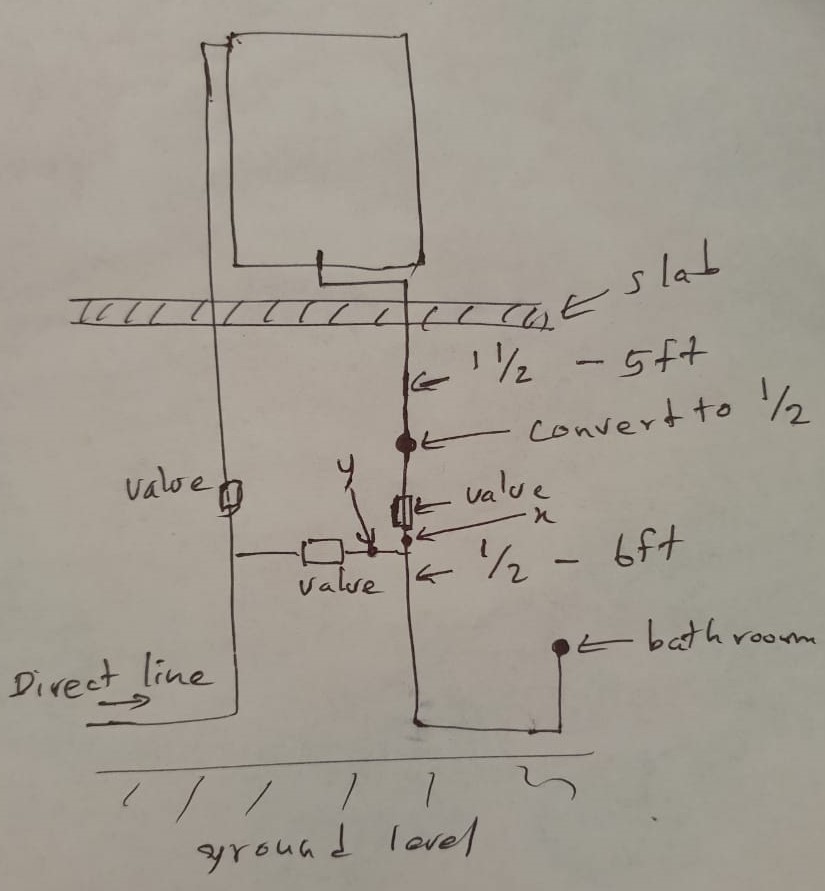 slab
1 1/2 - 5ft
convert to 1/2
y
valve
valve
x
1/2 - 6ft
valve
bathroom
Direct line
ground level